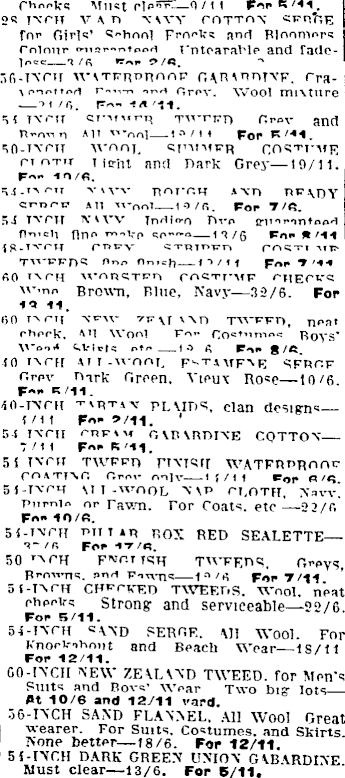 Checks Must clear—9/11 For 5/11.
28 INCH V.A.D. NAVY COTTON SERGE
for Girls' School Frocks and Bloomers
Colour guaranteed. Untearable and fade-
less—3/6 For 2/6.
56-INCH WATERPROOF GABARDINE, Cra-
venetted Fawn and Grey. Wool mixture
—21/6. For
54 INCH SUMMER TWEED Grey and
Brown All Wool— For 5/11.
50-INCH WOOL SUMMER COSTUME
CLOTH Light and Dark Grey—19/11.
For 10/6.
54-INCH NAVY ROUGH AND READY
SERGE All Wool—12/6. For 7/6.
54 INCH NAVY Indigo Dye guaranteed
finish fine make serge—13/6 For 8/11
48-INCH GREY STRIPED COSTUME
TWEEDS fine finish— For 7/11
60 INCH WORSTED COSTUME CHECKS
Wine, Brown, Blue, Navy—32/6. For
13 11.
60 INCH NEW ZEALAND TWEED, neat
check, All Wool For Costumes Boys'
Wear Skirts etc For 8/6.
40 INCH ALL-WOOL ESTAMENE SERGE
Grey Dark Green, Vieux Rose—10/6.
For 5/11.
40-INCH TARTAN PLAIDS, clan designs—
4/11 For 2/11.
54 INCH CREAM GABARDINE COTTON—
7/11 For 5/11.
54 INCH TWEED FINISH WATERPROOF
COATING Grey only— For 6/6.
54-INCH ALL-WOOL NAP CLOTH, Navy,
Purple or Fawn. For Coats, etc —22/6
For 10/6.
54-INCH PILLAR BOX RED SEALETTE—
For 17/6.
50 INCH ENGLISH TWEEDS, Greys,
Browns, and Fawns— For 7/11.
54-INCH CHECKED TWEEDS, Wool, neat
checks Strong and serviceable—22/6.
For 5/11.
54-INCH SAND SERGE, All Wool. For
Knockabout and Beach Wear—18/11
For 12/11.
60-INCH NEW ZEALAND TWEED, for Men's
Suits and Boys' Wear Two big lots—
At 10/6 and 12/11 yard.
56-INCH SAND FLANNEL, All Wool Great
wearer. For Suits, Costumes, and Skirts.
None better—18/6. For 12/11.
54-INCH DARK GREEN UNION GABARDINE.
Must clear—13/6. For 5/11.